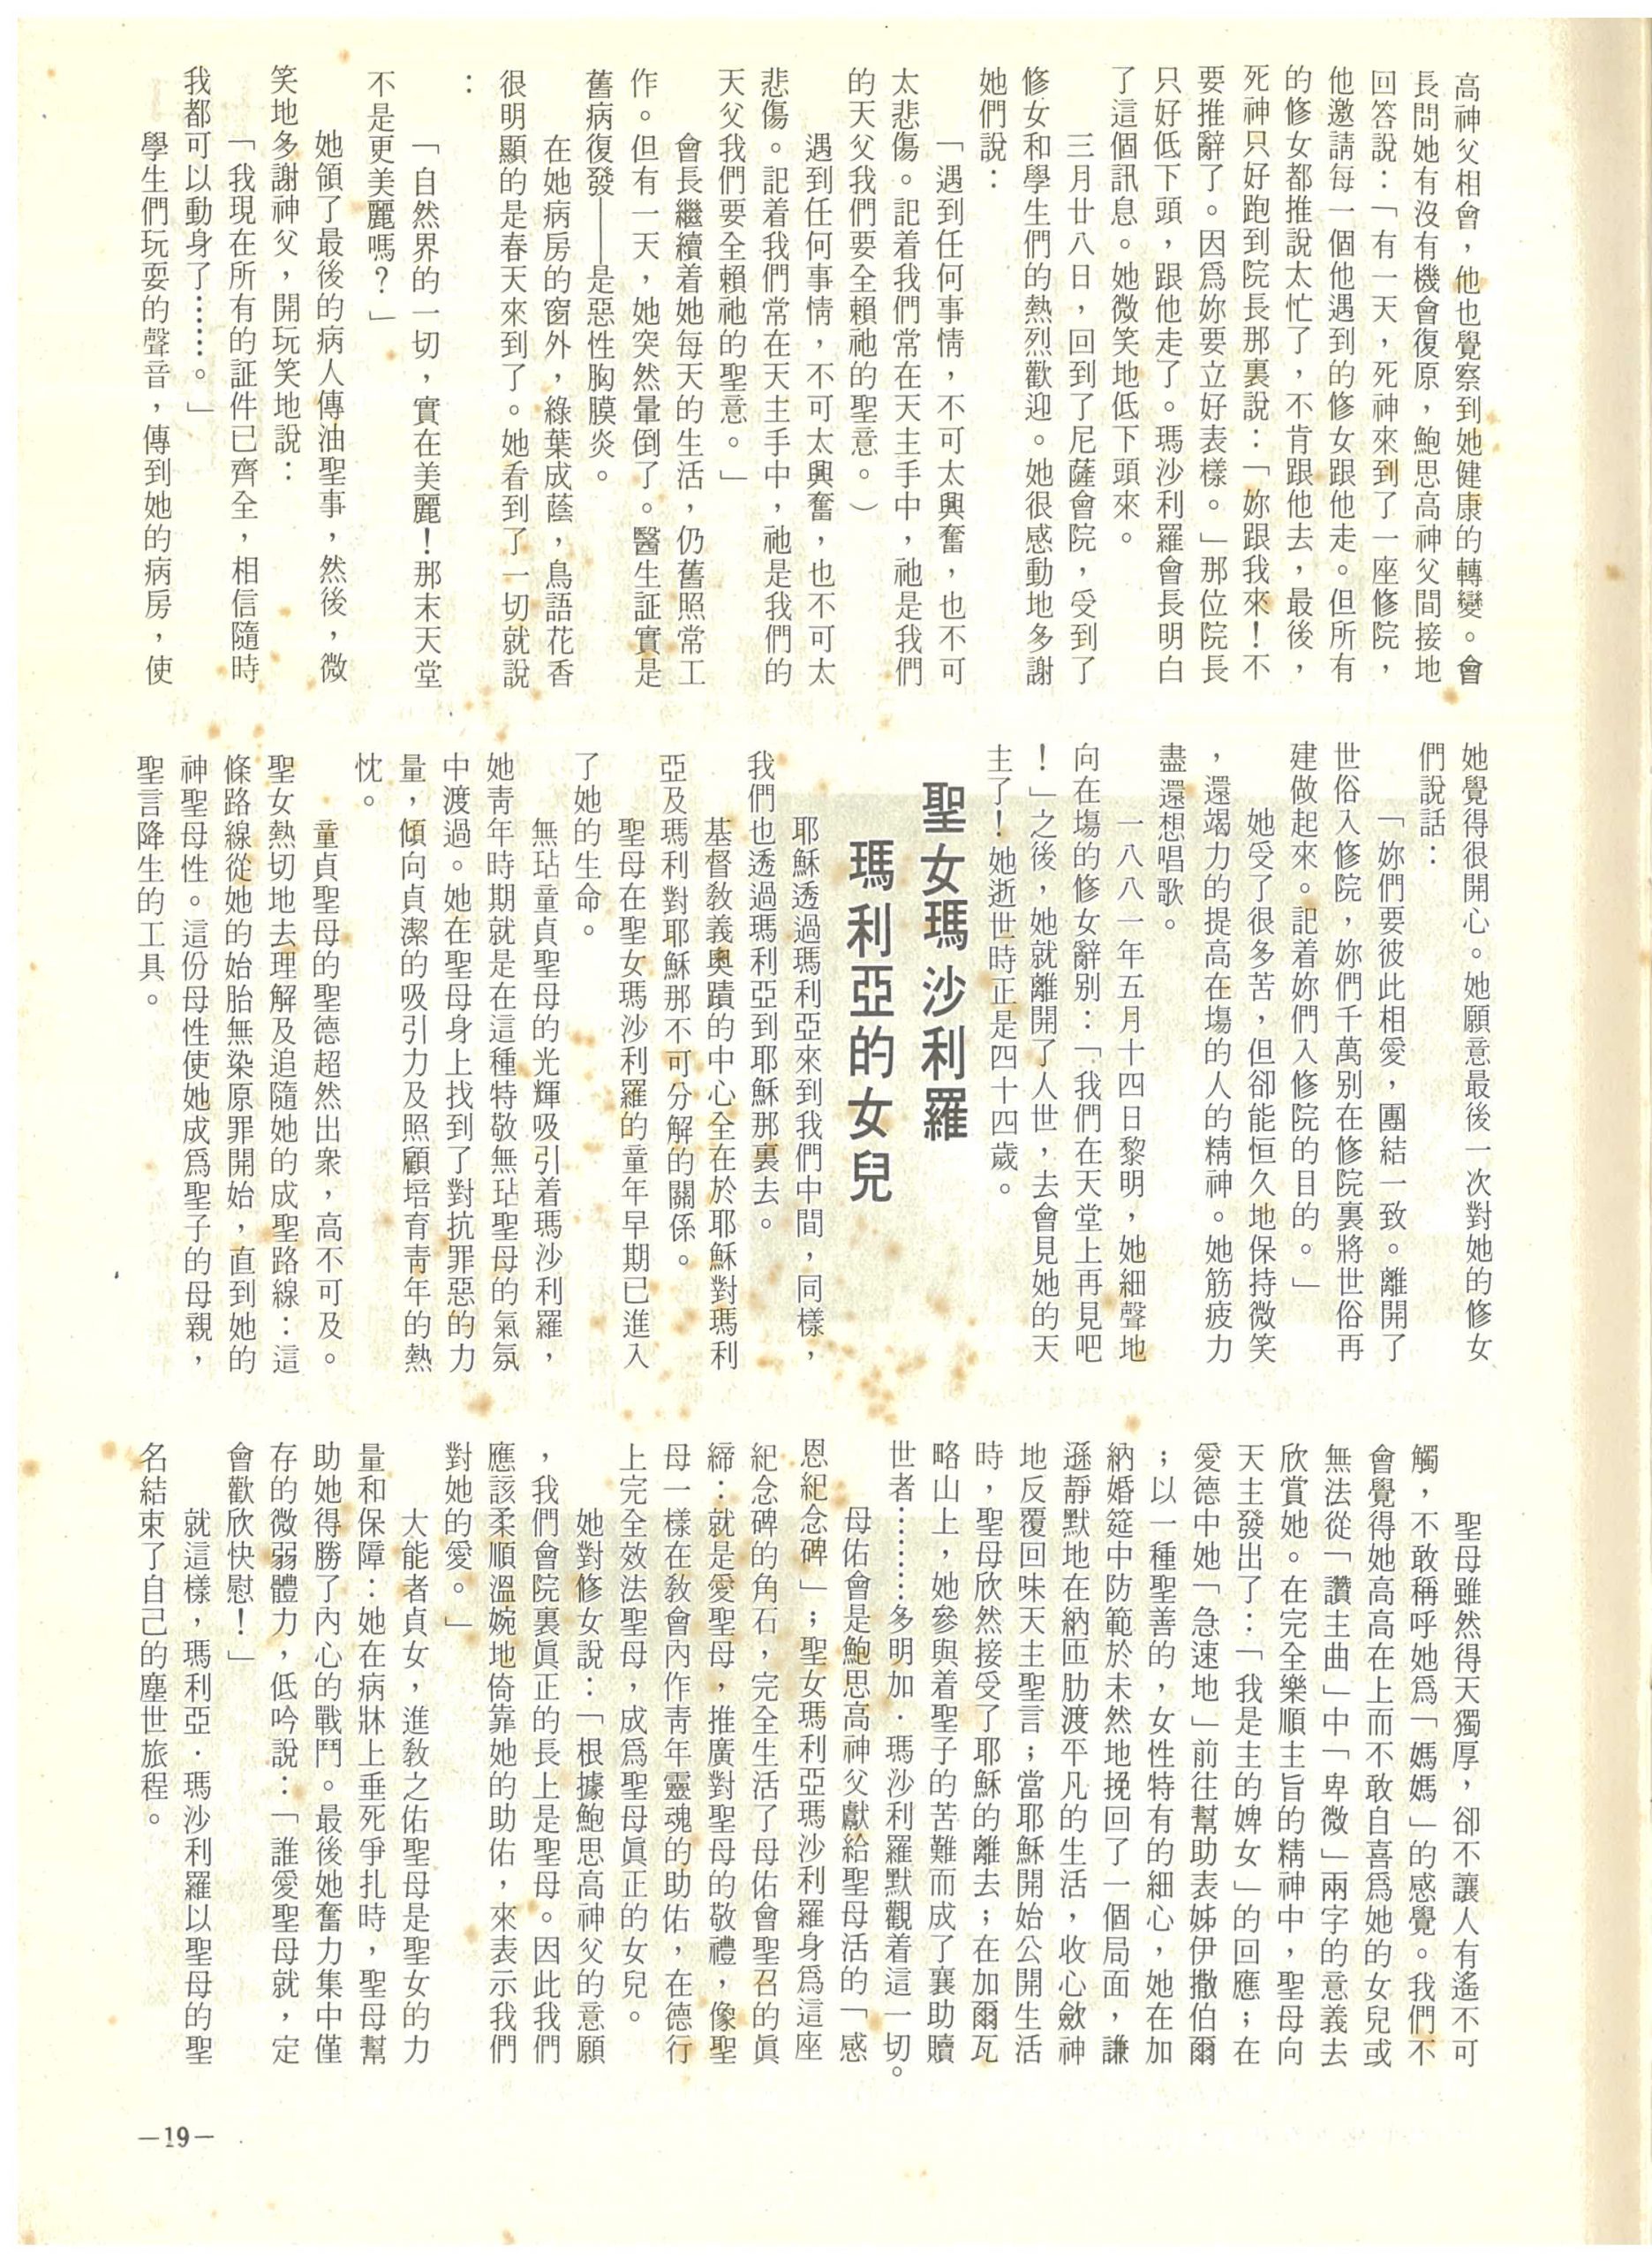 高神父相會，他也覺察到她健康的轉變。會
長問她有沒有機會復原，鮑思高神父間接地
回答說：「有一天，死神來到了一座修院，
他邀請每一個他遇到的修女跟他走。但所有
的修女都推說太忙了，不肯跟他去，最後，
死神只好跑到院長那裏說：「妳跟我來！不
要推辭了。因爲妳要立好表樣。」那位院長
只好低下頭，跟他走了。瑪沙利羅會長明白
了這個訊息。她微笑地低下頭來。
三月廿八日，回到了尼薩會院，受到了
修女和學生們的熱烈歡迎。她很感動地多謝
她們說：
「遇到任何事情，不可太興奮，也不可
太悲傷。記着我們常在天主手中，祂是我們
的天父我們要全賴祂的聖意。）
遇到任何事情，不可太興奮，也不可太
悲傷。記着我們常在天主手中，祂是我們的
天父我們要全賴祂的聖意。」
會長繼續着她每天的生活，仍舊照常工
作。但有一天，她突然暈倒了。醫生証實是
舊病復發——是惡性胸膜炎。
在她病房的窗外，綠葉成蔭，鳥語花香
很明顯的是春天來到了。她看到了一切就說
：
「自然界的一切，實在美麗！那末天堂
不是更美麗嗎？」
她領了最後的病人傳油聖事，然後，微
笑地多謝神父，開玩笑地說：
「我現在所有的証件已齊全，相信隨時
我都可以動身了……。」
學生們玩耍的聲音，傳到她的病房，使
她覺得很開心。她願意最後一次對她的修女
們說話：
「妳們要彼此相愛，團結一致。離開了
世俗入修院，妳們千萬別在修院裏將世俗再
建做起來。記着妳們入修院的目的。」
她受了很多苦，但卻能恒久地保持微笑
，還竭力的提高在塲的人的精神。她筋疲力
盡還想唱歌。
一八八一年五月十四日黎明，她細聲地
向在塲的修女辭別：「我們在天堂上再見吧
！」之後，她就離開了人世，去會見她的天
主了！她逝世時正是四十四歲。
聖女瑪沙利羅
瑪利亞的女兒
耶穌透過瑪利亞來到我們中間，同樣，
我們也透過瑪利亞到耶穌那裏去。
基督敎義奧蹟的中心全在於耶穌對瑪利
亞及瑪利對耶穌那不可分解的關係。
聖母在聖女瑪沙利羅的童年早期已進入
了她的生命。
無玷童貞聖母的光輝吸引着瑪沙利羅，
她靑年時期就是在這種特敬無玷聖母的氣氛
中渡過。她在聖母身上找到了對抗罪惡的力
量，傾向貞潔的吸引力及照顧培育靑年的熱
忱。
童貞聖母的聖德超然出衆，高不可及。
聖女熱切地去理解及追隨她的成聖路線：這
條路線從她的始胎無染原罪開始，直到她的
神聖母性。這份母性使她成爲聖子的母親，
聖言降生的工具。
聖母雖然得天獨厚，卻不讓人有遙不可
觸，不敢稱呼她爲「媽媽」的感覺。我們不
會覺得她高高在上而不敢自喜爲她的女兒或
無法從「讚主曲」中「卑微」兩字的意義去
欣賞她。在完全樂順主旨的精神中，聖母向
天主發出了：「我是主的婢女」的回應；在
愛德中她「急速地」前往幫助表姊伊撒伯爾
；以一種聖善的，女性特有的細心，她在加
納婚筵中防範於未然地挽回了一個局面，謙
遜靜默地在納匝肋渡平凡的生活，收心歛神
地反覆回味天主聖言；當耶穌開始公開生活
時，聖母欣然接受了耶穌的離去；在加爾瓦
略山上，她參與着聖子的苦難而成了襄助贖
世者………多明加．瑪沙利羅默觀着這一切。
母佑會是鮑思高神父獻給聖母活的「感
恩紀念碑」；聖女瑪利亞瑪沙利羅身爲這座
紀念碑的角石，完全生活了母佑會聖召的眞
締：就是愛聖母，推廣對聖母的敬禮，像聖
母一樣在敎會內作靑年靈魂的助佑，在德行
上完全效法聖母，成爲聖母眞正的女兒。
她對修女說：「根據鮑思高神父的意願
，我們會院裏眞正的長上是聖母。因此我們
應該柔順溫婉地倚靠她的助佑，來表示我們
對她的愛。」
大能者貞女，進敎之佑聖母是聖女的力
量和保障：她在病牀上垂死爭扎時，聖母幫
助她得勝了內心的戰鬥。最後她奮力集中僅
存的微弱體力，低吟說：「誰愛聖母就，定
會歡欣快慰！」
就這樣，瑪利亞．瑪沙利羅以聖母的聖
名結束了自己的塵世旅程。
—19—